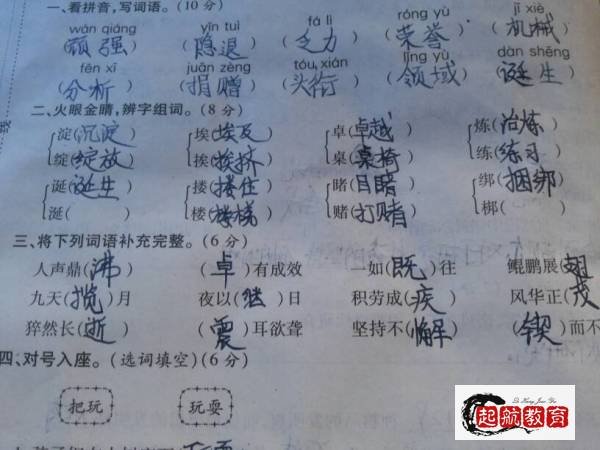 一、看拼音,写词语。(10分)
wán qiáng yǐn tuì fá lì róng yù jī xiè
(顽强) (隐退) (乏力) (荣誉) (机械)
fēn xī juān zèng tóu xián lǐng yù dàn shēng
(分析) (捐赠) (头衔) (领域) (诞生)
二、火眼金睛,辨字组词。(8分)
淀(沉淀) 埃(埃及) 卓(卓越) 炼(冶炼)
绽(绽放) 挨(挨挤) 桌(桌椅) 练(练习)
诞(诞生) 搂(搂住) 睹(目睹) 绑(捆绑)
涎( ) 楼(楼梯) 赌(打赌) 梆( )
三、将下列词语补充完整。(6分)
人声鼎(沸) (卓)有成效 一如(既)往 鲲鹏展(翅
九天(揽)月 夜以(继)日 积劳成(疾) 风华正(茂
猝然长(逝) (震)耳欲聋 坚持不(懈) (锲)而不
四、对号入座。(选词填空)(6分)
把玩 玩耍
起航教育